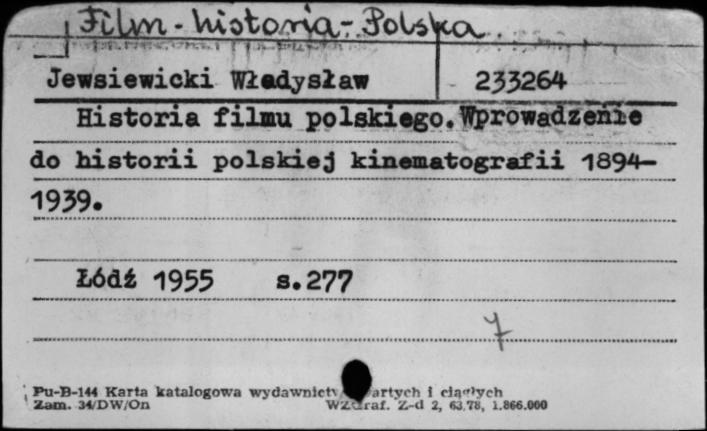 Film - historia - Polska
Jewsiewicki Władysław 233264
Historia filmu polskiego. Wprowadzenie
do historii polskiej kinematografii 1894-
1939.
Łódź 1955 s.277
7
Pu-B-144 Karta katalogowa wydawnictw i ciągłych
Zam. 34/DW/On Z-d 2, 63,78, 1.866.000